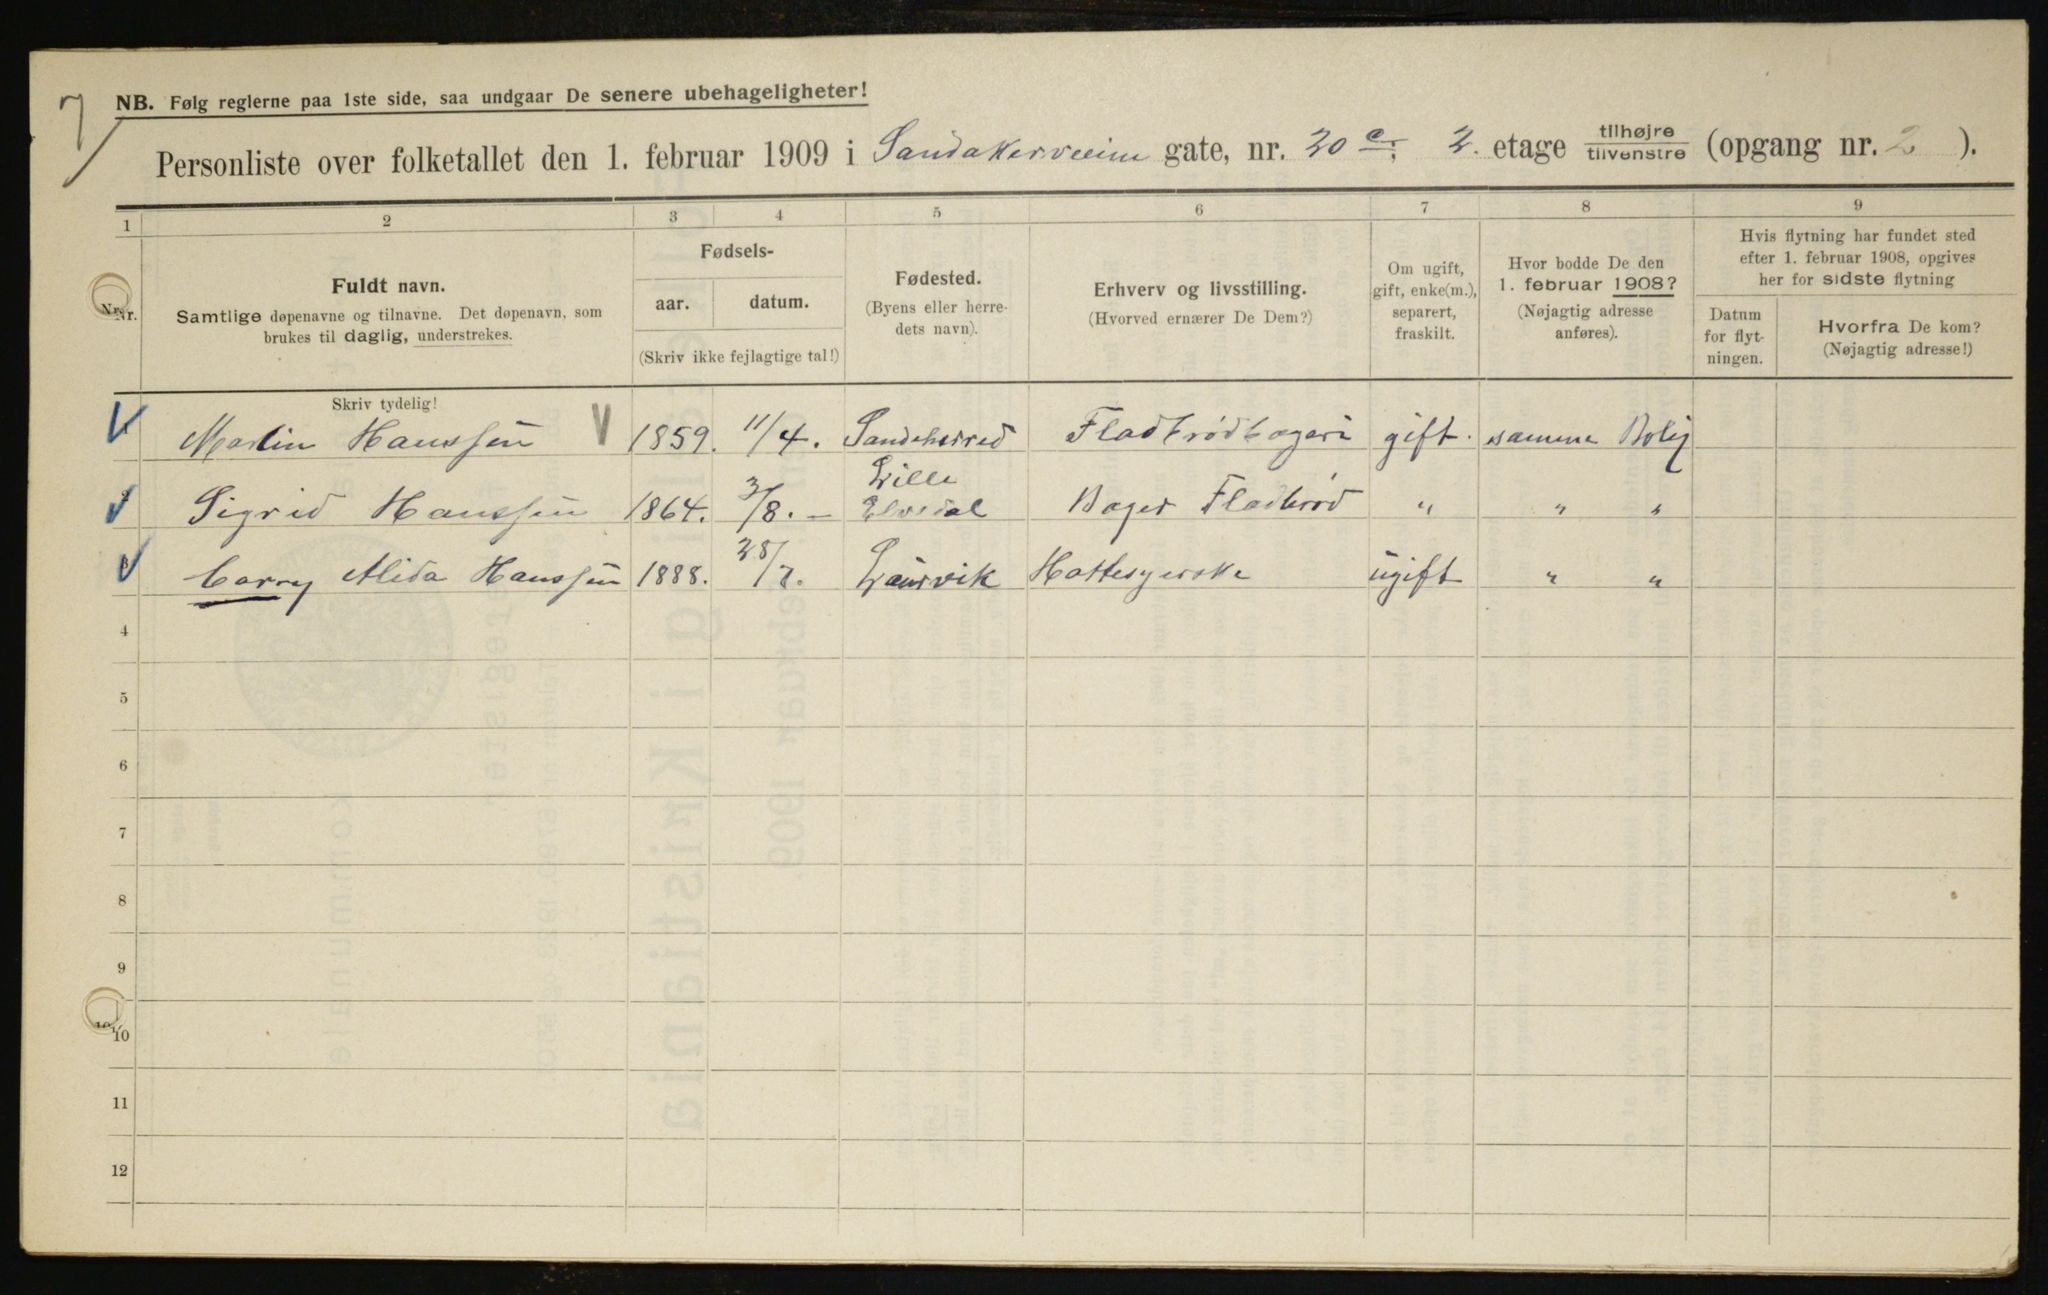 7
NB. Følg reglerne paa 1ste side, saa undgaar De senere ubehageligheter!
Personliste over folketallet den 1. februar 1909 i Sandakerveien gate, nr. 20 c. 2. etage tilhøjre/tilvenstre (opgang nr. 2 ).
1 2 3 4 5 6 7 8 9
Nr.
Fuldt navn.
Samtlige døpenavne og tilnavne. Det døpenavn, som
brukes til daglig, understrekes.
Skriv tydelig!
Fødsels-
aar. datum.
(Skriv ikke fejlagtige tal!)
Fødested.
(Byens eller herre-
dets navn).
Erhverv og livsstilling.
(Hvorved ernærer De Dem?)
Om ugift,
gift, enke(m.),
separert,
fraskilt.
Hvor bodde De den
1. februar 1908?
(Nøjagtig adresse
anføres).
Hvis flytning har fundet sted
efter 1. februar 1908, opgives
her for sidste flytning
Datum
for flyt-
ningen.
Hvorfra De kom?
(Nøjagtig adresse!)
Martin Hanssen 1859. 11/4. Sandeherred Fladbrødbageri gift. samme Bolig
Sigrid Hanssen 1864. 3/8. – Lille Elvedal Bager Fladbrød " " "
3 Carry Alida Hanssen 1888. 28/7. Laurvik Hattesyerske ugift " "
4
5
6
7
8
9
10
11
12